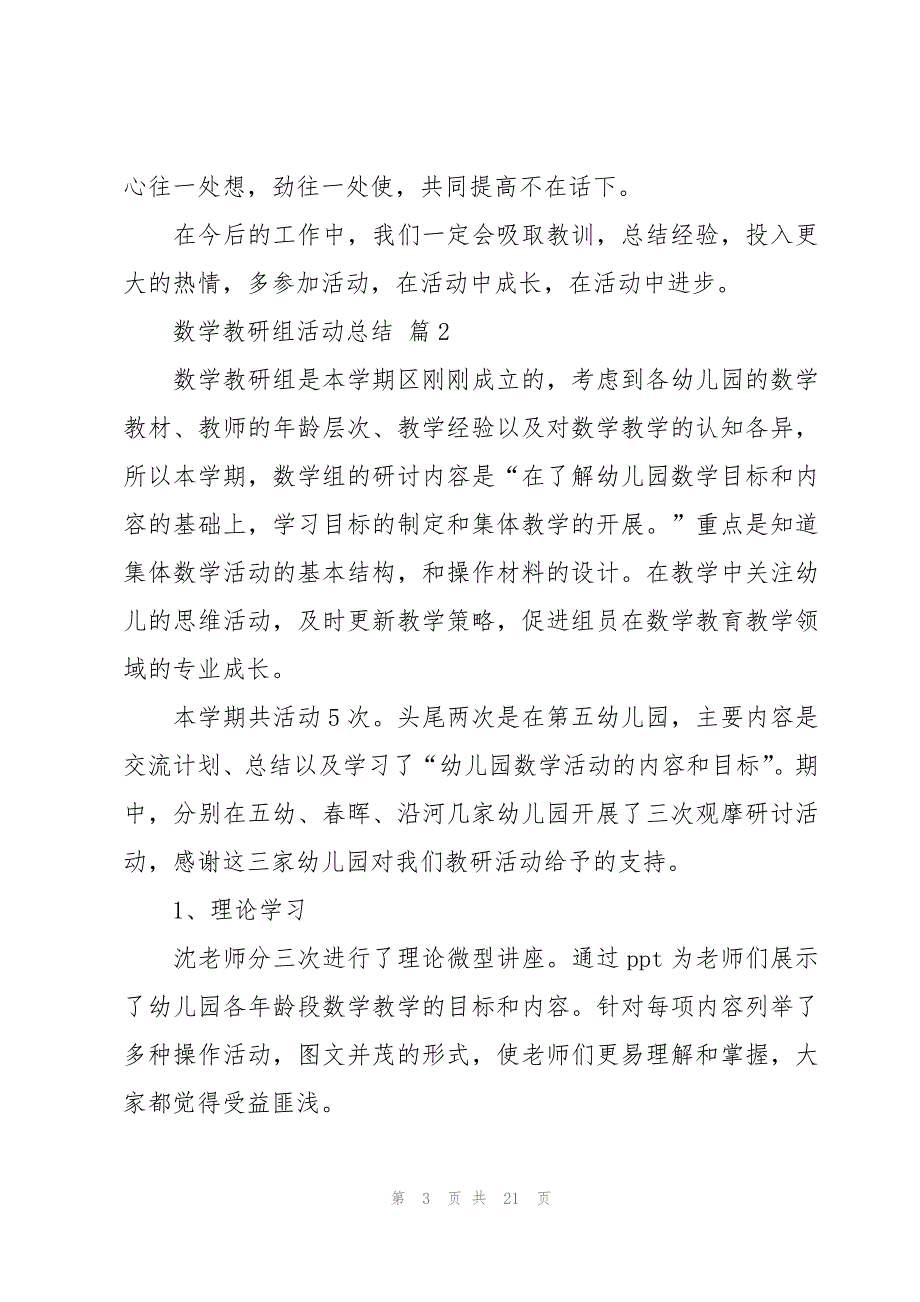 心往一处想，劲往一处使，共同提高不在话下。
在今后的工作中，我们一定会吸取教训，总结经验，投入更
大的热情，多参加活动，在活动中成长，在活动中进步。
数学教研组活动总结 篇2
数学教研组是本学期区刚刚成立的，考虑到各幼儿园的数学
教材、教师的年龄层次、教学经验以及对数学教学的认知各异，
所以本学期，数学组的研讨内容是“在了解幼儿园数学目标和内
容的基础上，学习目标的制定和集体教学的开展。”重点是知道
集体数学活动的基本结构，和操作材料的设计。在教学中关注幼
儿的思维活动，及时更新教学策略，促进组员在数学教育教学领
域的专业成长。
本学期共活动5次。头尾两次是在第五幼儿园，主要内容是
交流计划、总结以及学习了“幼儿园数学活动的内容和目标”。期
中，分别在五幼、春晖、沿河几家幼儿园开展了三次观摩研讨活
动，感谢这三家幼儿园对我们教研活动给予的支持。
1、理论学习
沈老师分三次进行了理论微型讲座。通过ppt为老师们展示
了幼儿园各年龄段数学教学的目标和内容。针对每项内容列举了
多种操作活动，图文并茂的形式，使老师们更易理解和掌握，大
家都觉得受益匪浅。
第 3 页 共 21 页